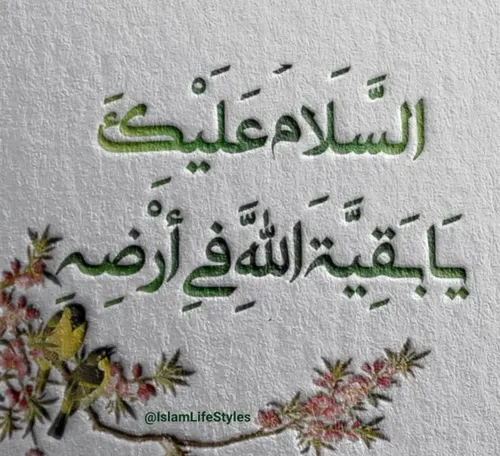 السَّلَامُ عَلَيْكَ
يَا بَقِيَّةَ اللَّهِ فِي أَرْضِهِ
@IslamLifeStyles